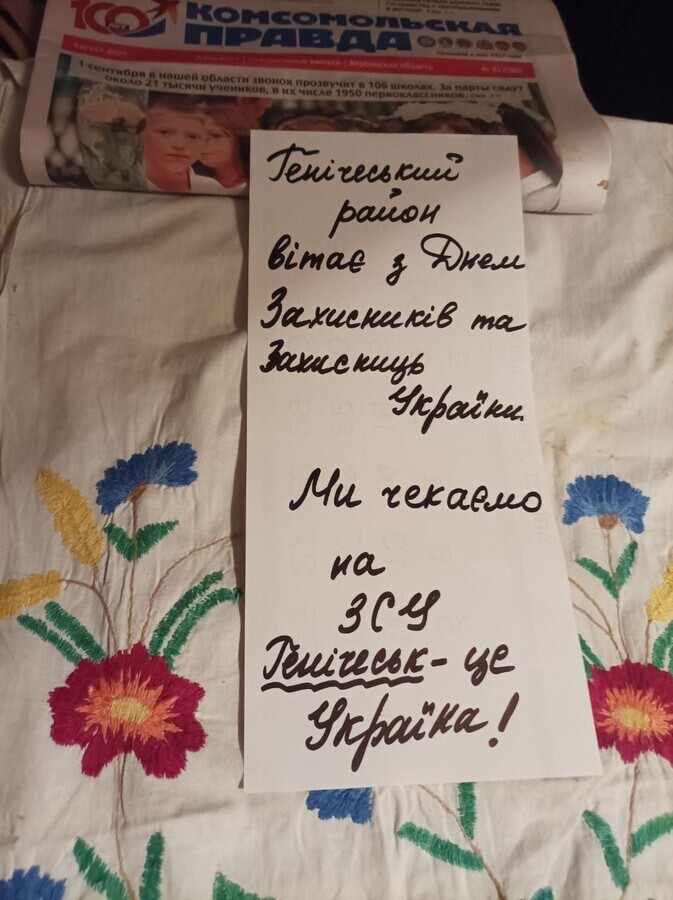 КОМСОМОЛЬСКАЯ
ПРАВДА
Август 2025
1 сентября в нашей области звонок прозвучит в 106 школах. За парты сядут
около 21 тысячи учеников, в их числе 1950 первоклассников.
Генічеський
район
вітає з Днем
Захисників та
Захисниць
України.
Ми чекаємо
на
ЗСУ
Генічеськ - це
Україна!